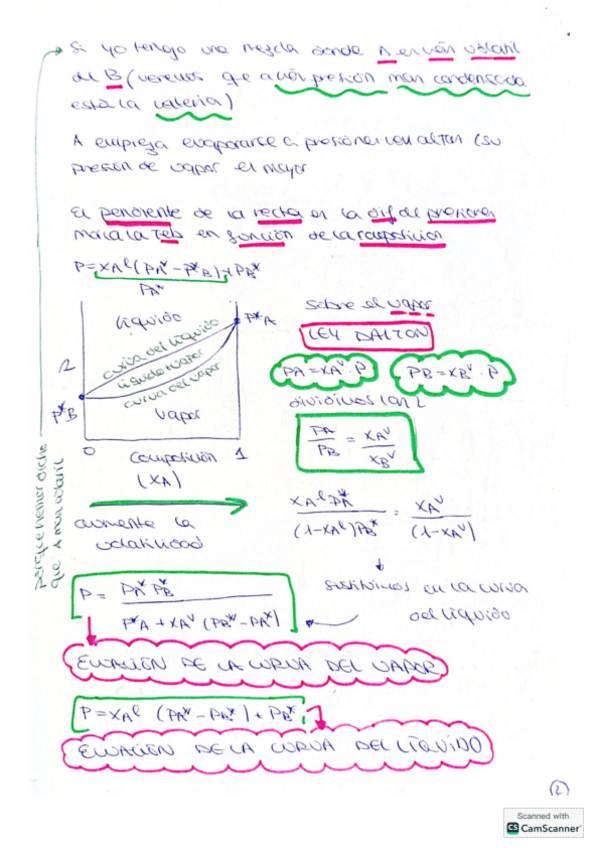 Si yo tengo una mezcla donde A es más volátil
de B (veremos que a más presión más condensada
está la materia)
A empieza evaporarse a presiones más altas (su
presión de vapor es mayor
El pendiente de la recta es la dif de presiones
marca la Teb en función de la composición
P = xA^l (PA* - P*B) + PB*
PA*
líquido
P*A
curva del líquido
líquido vapor
curva del vapor
vapor
P*B
0
1
composición
(XA)
aumenta la
volatilidad
porque hemos dicho
que A más volátil
sobre el vapor
LEY DALTON
PA = xA^v · P
PB = xB^v · P
dividimos las 2
PA / PB = xA^v / xB^v
xA^l PA* / (1-xA^l) PB* = xA^v / (1-xA^v)
sustituimos en la curva
del líquido
P = PA* PB* / P*A + xA^v (PB* - PA*)
ECUACIÓN DE LA CURVA DEL VAPOR
P = xA^l (PA* - PB*) + PB*
ECUACIÓN DE LA CURVA DEL LÍQUIDO
(2)
Scanned with
CS CamScanner